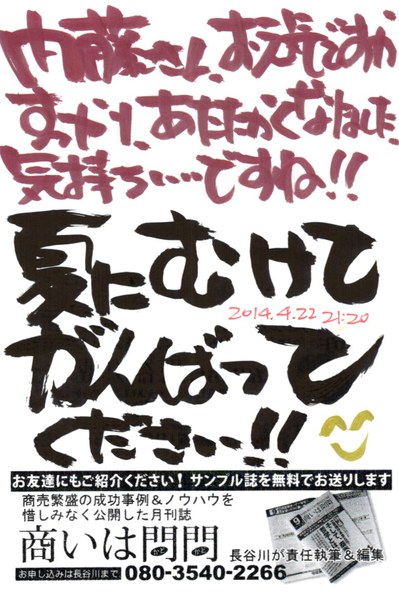 内藤さん、お元気ですか
すっかり、あたたかくなりました、
気持ちいいですね!!
夏にむけて
2014.4.22 21:20
がんばって
ください!!
お友達にもご紹介ください!サンプル誌を無料でお送りします
商売繁盛の成功事例&ノウハウを
惜しみなく公開した月刊誌
商いは門門
かど かど
長谷川が責任執筆&編集
お申し込みは長谷川まで 080-3540-2266